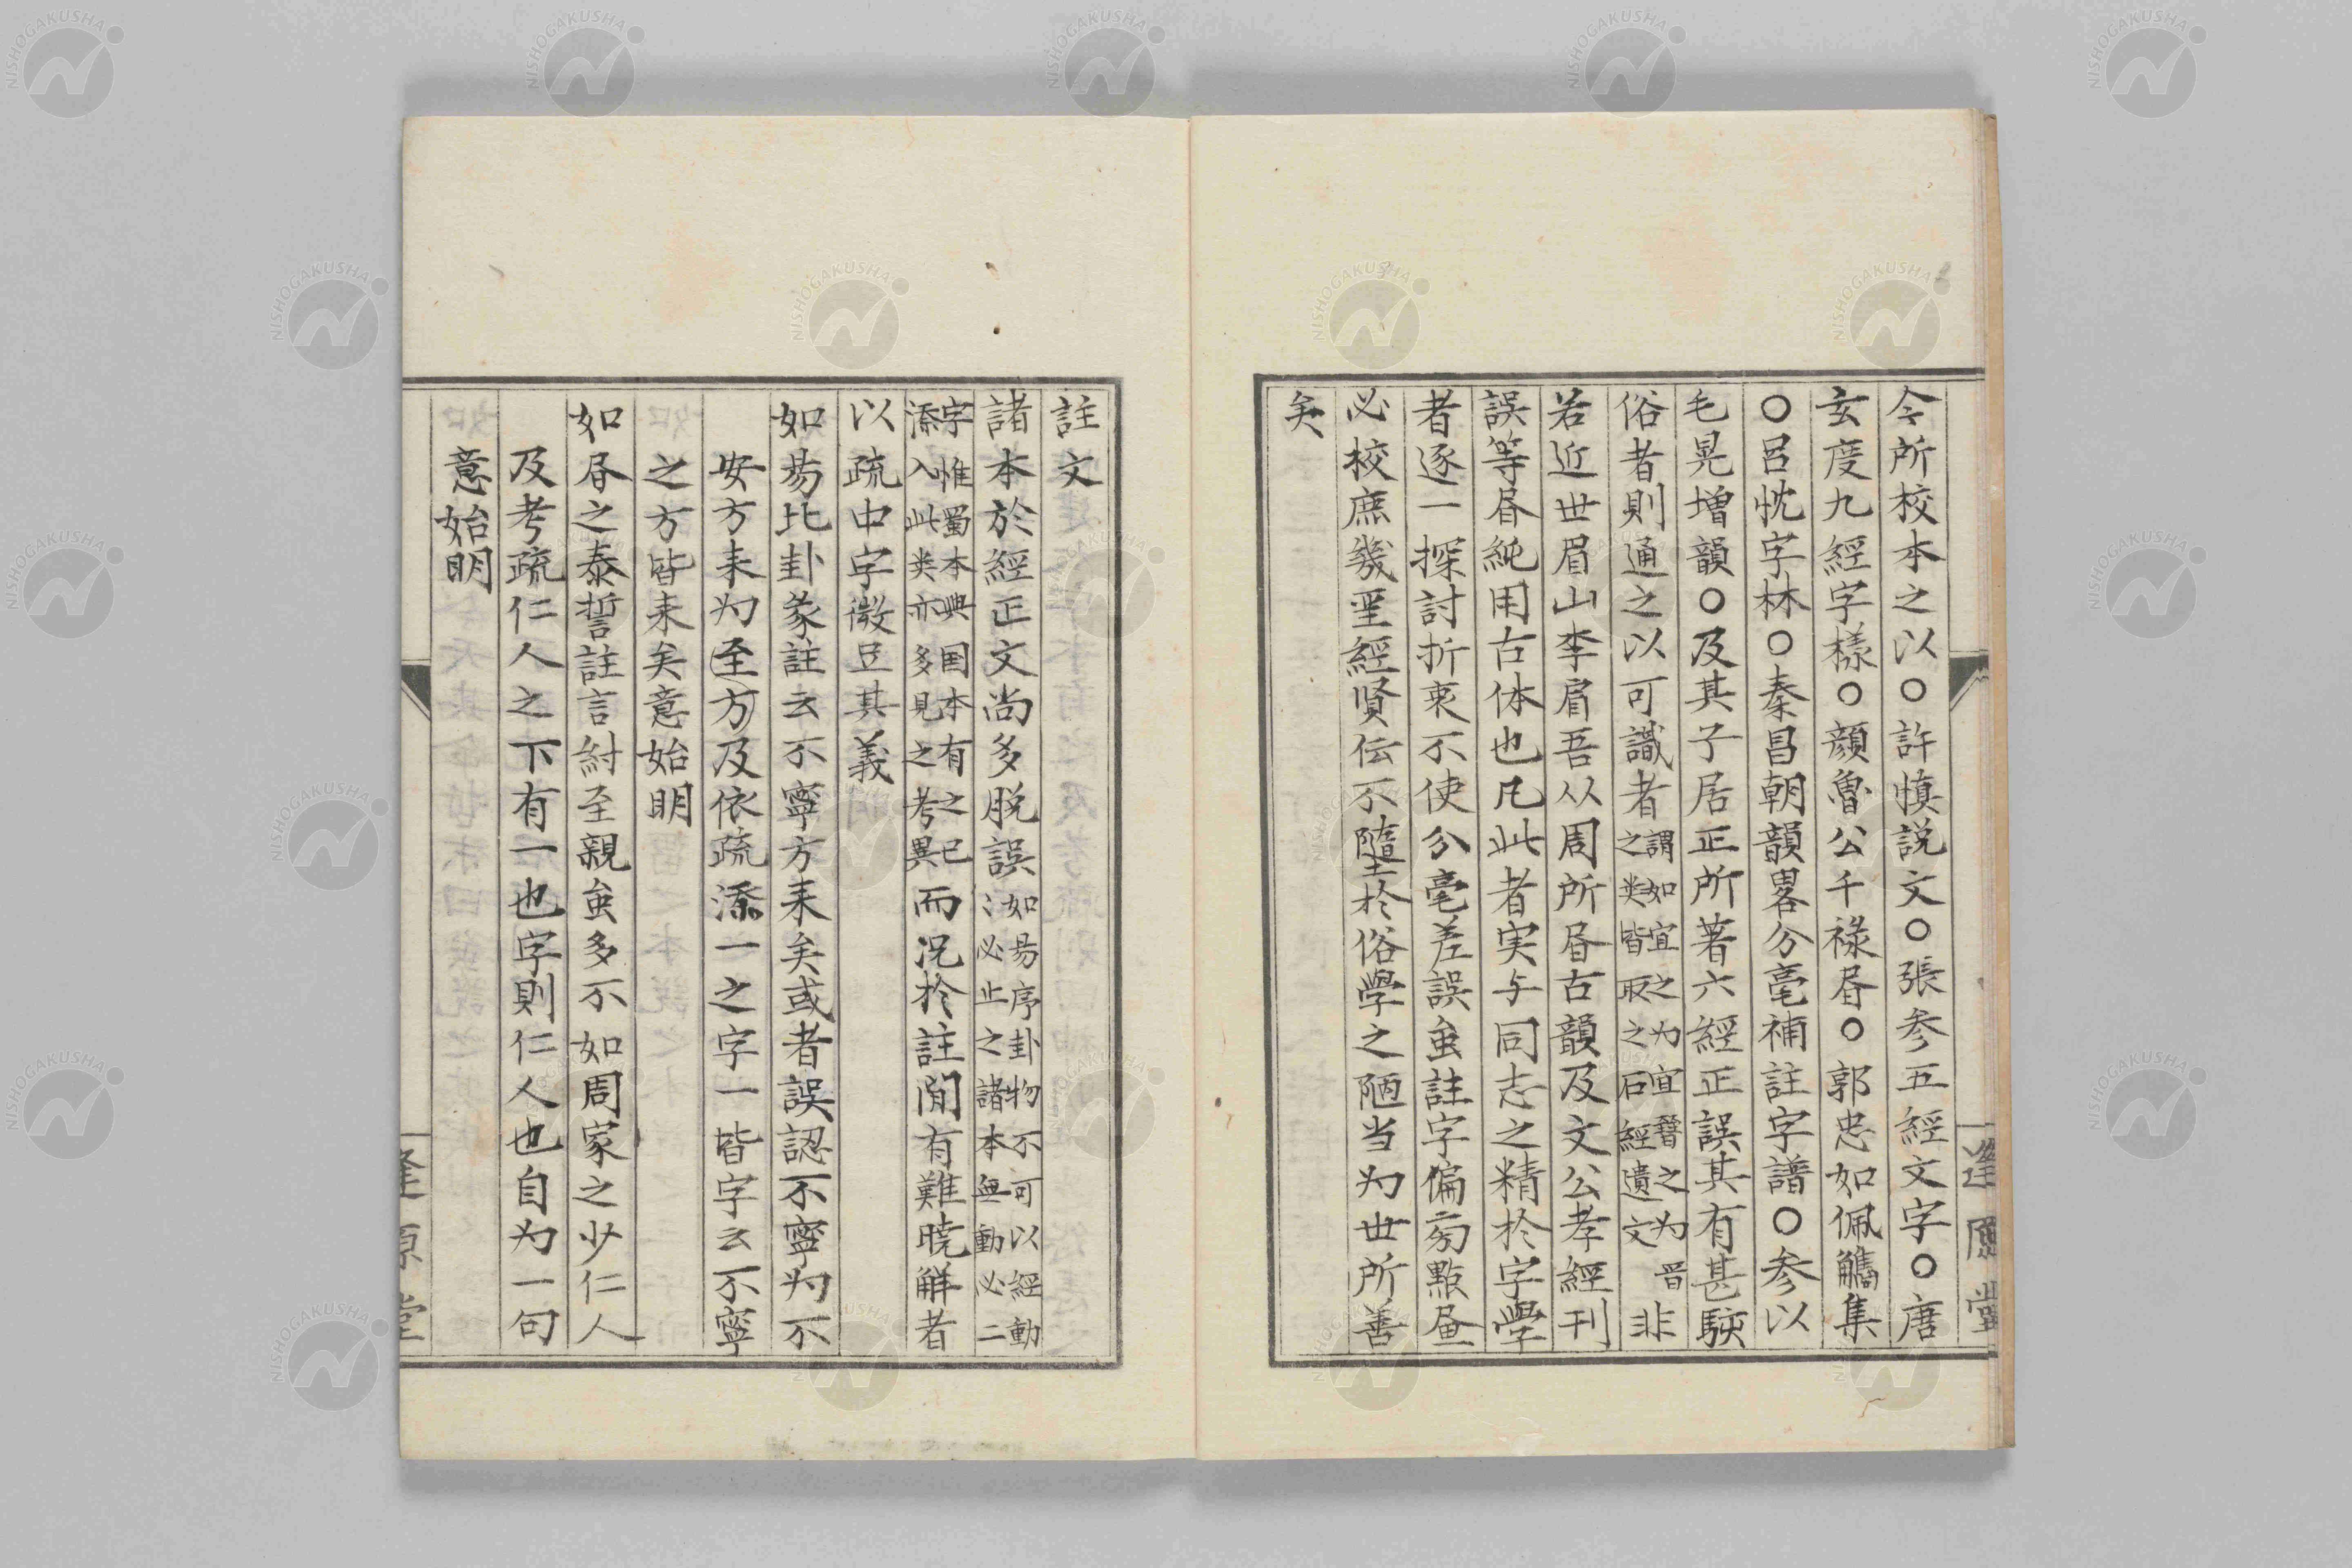 今所校本之以○許慎説文○張参五經文字○唐
玄度九經字樣○顔魯公干祿昼○郭忠如佩觿集
○呂忱字林○秦昌朝韻畧分毫補註字譜○参以
毛晃増韻○及其子居正所著六經正誤其有甚駭
俗者則通之以可識者謂如宜之为宜晉之为晋之类皆取之石經遺文非
若近世眉山李肩吾从周所昼古韻及文公孝經刊
誤等昼純用古体也凡此者実与同志之精於字學
者逐一探討折衷不使分毫差誤虽註字偏旁點画
必校庶幾聖經賢伝不墮於俗學之陋当为世所善
矣
逢原堂
註文
諸本於經正文尚多脱誤如昜序卦物不可以經動〻必止之諸本無動必二
字惟蜀本與国本有之已添入此类亦多見之考異而況於註間有難暁觧者
以疏中字微豆其義
如昜比卦彖註云不寧方来矣或者誤認不寧为不
安方来为至方及依疏添一之字一皆字云不寧
之方皆来矣意始明
如昼之泰誓註言紂至親虽多不如周家之少仁人
及考疏仁人之下有一也字則仁人也自为一句
意始明
逢原堂